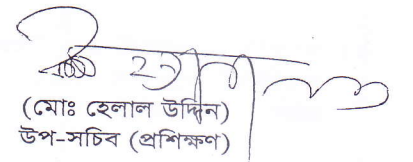 (মোঃ হেলাল উদ্দিন)
উপ-সচিব (প্রশিক্ষণ)